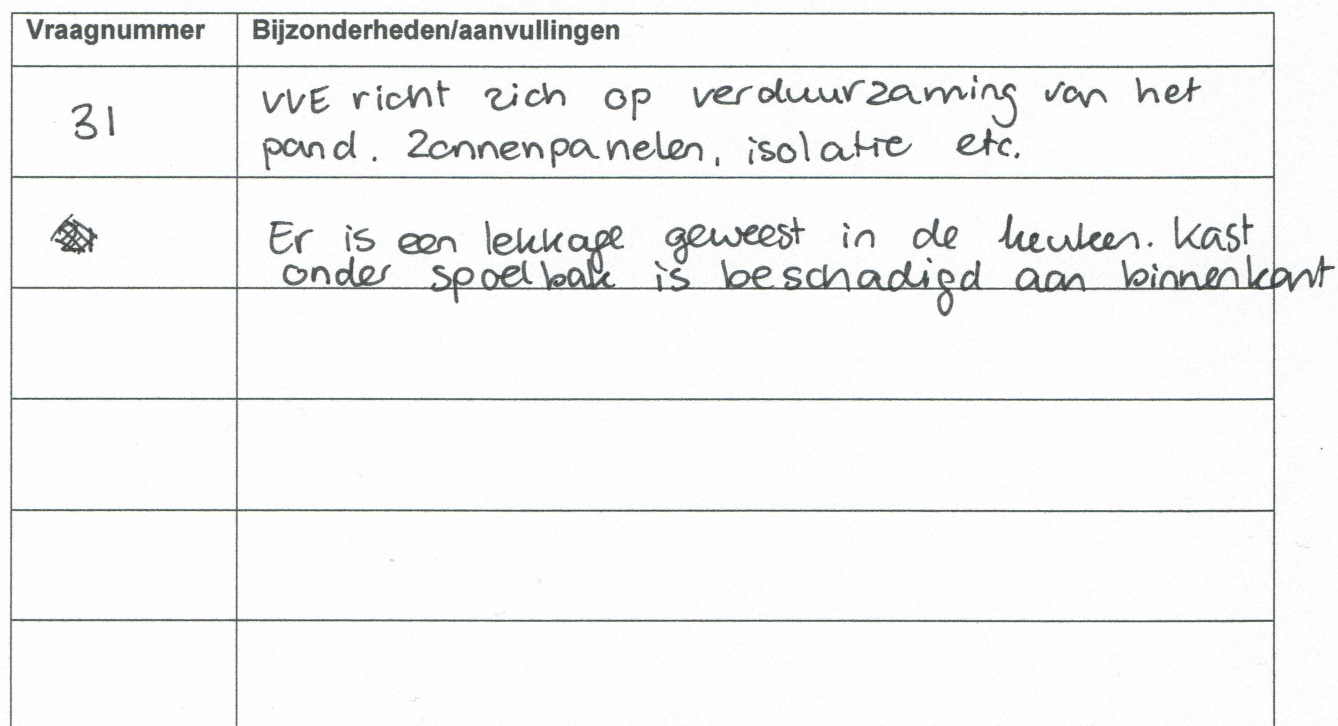 Vraagnummer Bijzonderheden/aanvullingen
31 VVE richt zich op verduurzaming van het
pand. Zonnenpanelen, isolatie etc.
Er is een lekkage geweest in de keuken. Kast
onder spoelbak is beschadigd aan binnenkant